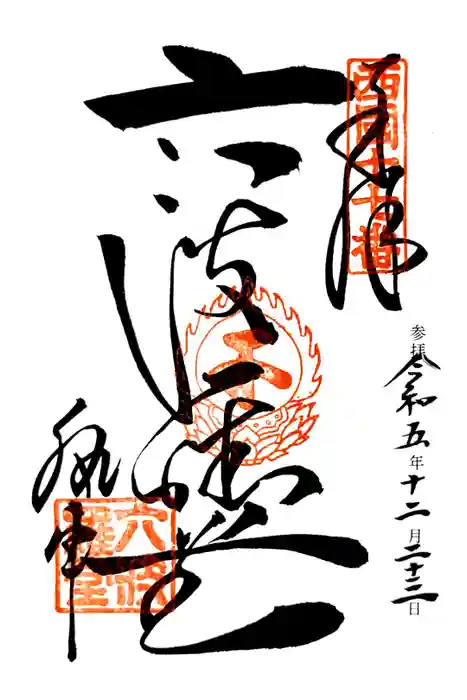 奉拝
西国十七番
参拝 令和五年十二月二十三日
六波羅堂
執事
六波
羅堂